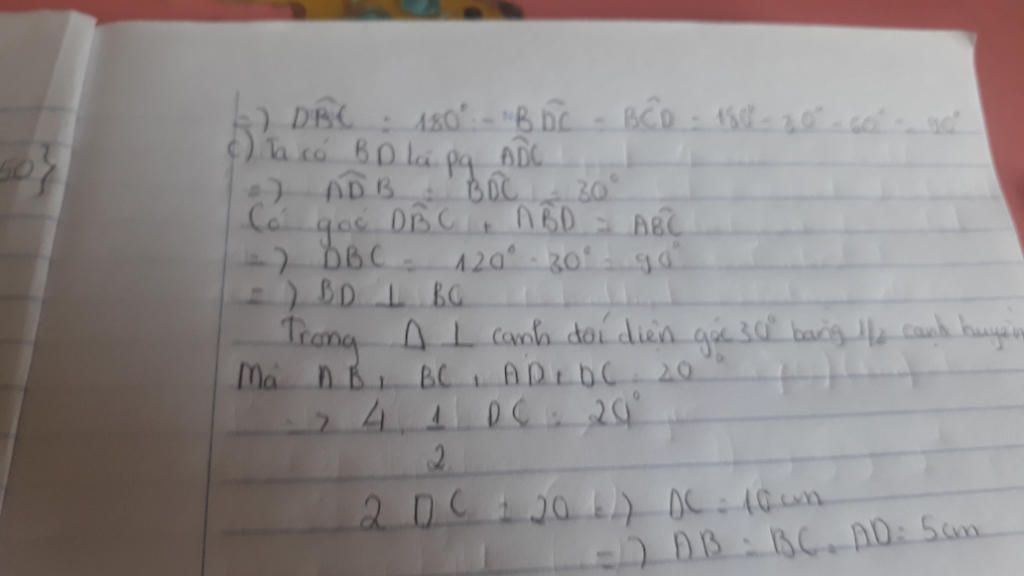 =) DB̂C = 180° - BD̂C - BĈD = 180° - 30° - 60° = 90°
50}
c) Ta có BD là pg AD̂C
=) AD̂B = BD̂C = 30°
Có góc DB̂C + AB̂D = AB̂C
=) DBC = 120° - 30° = 90°
=) BD ⊥ BC
Trong Δ ⊥ cạnh đối diện góc 30° bằng 1/2 cạnh huyền
Mà AB + BC + AD + DC = 20°
=> 4. 1/2 DC = 20°
2 DC = 20 =) DC = 10 cm
=) AB = BC = AD = 5cm